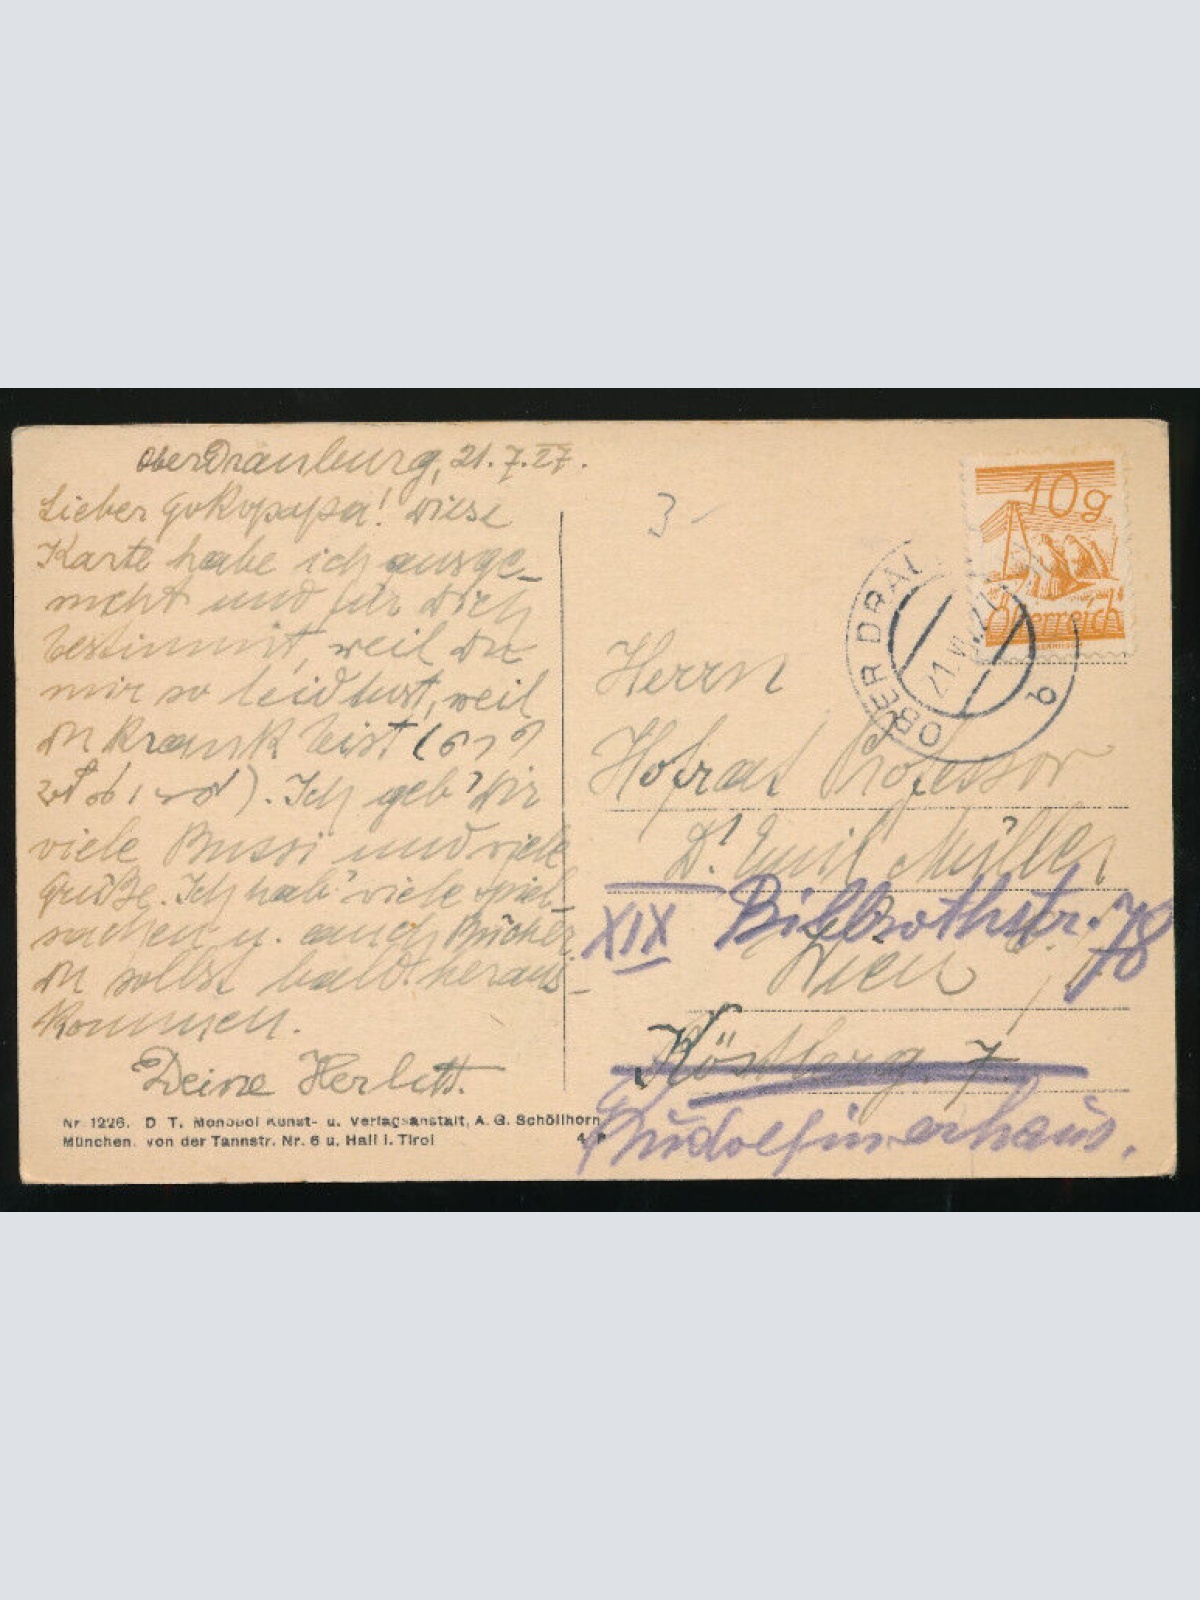 OberDrauburg, 21.7.27.
Lieber Gokopapa! Diese
Karte habe ich ausge-
sucht und für Dich
bestimmt, weil Du
mir so leid tust, weil
Du krank bist (
). Ich geb' Dir
viele Bussi und viele
Grüße. Ich hab' viele Spiel-
sachen u. auch Bücher.
Du sollst bald heraus-
kommen.
Deine Herlett.
Nr. 1226. D T. Monopol Kunst- u. Verlagsanstalt, A. G. Schöllhorn
München. von der Tannstr. Nr. 6 u. Hall i. Tirol
3-
10g
Österreich
OBER DRAU
21.VII.27
b
Herrn
Hofrat Professor
Dr. Emil Müller
XIX Billrothstr. 78
Wien
Köstlerg. 7
Rudolfinerhaus.